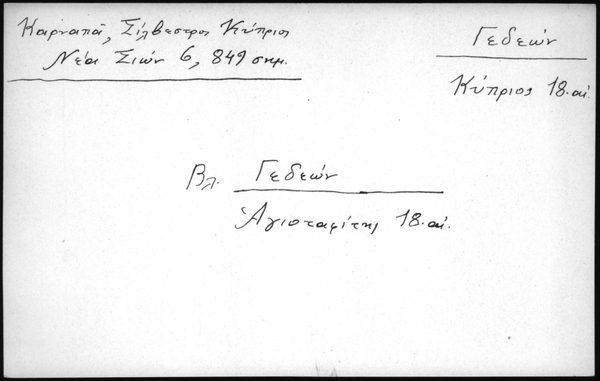 Καρναπᾶ, Σίλβεστρος Κύπριος
Νέα Σιών 6, 849 σημ.
Γεδεών
Κύπριος 18. αἰ.
Βλ. Γεδεών
Ἁγιοταφίτης 18. αἰ.